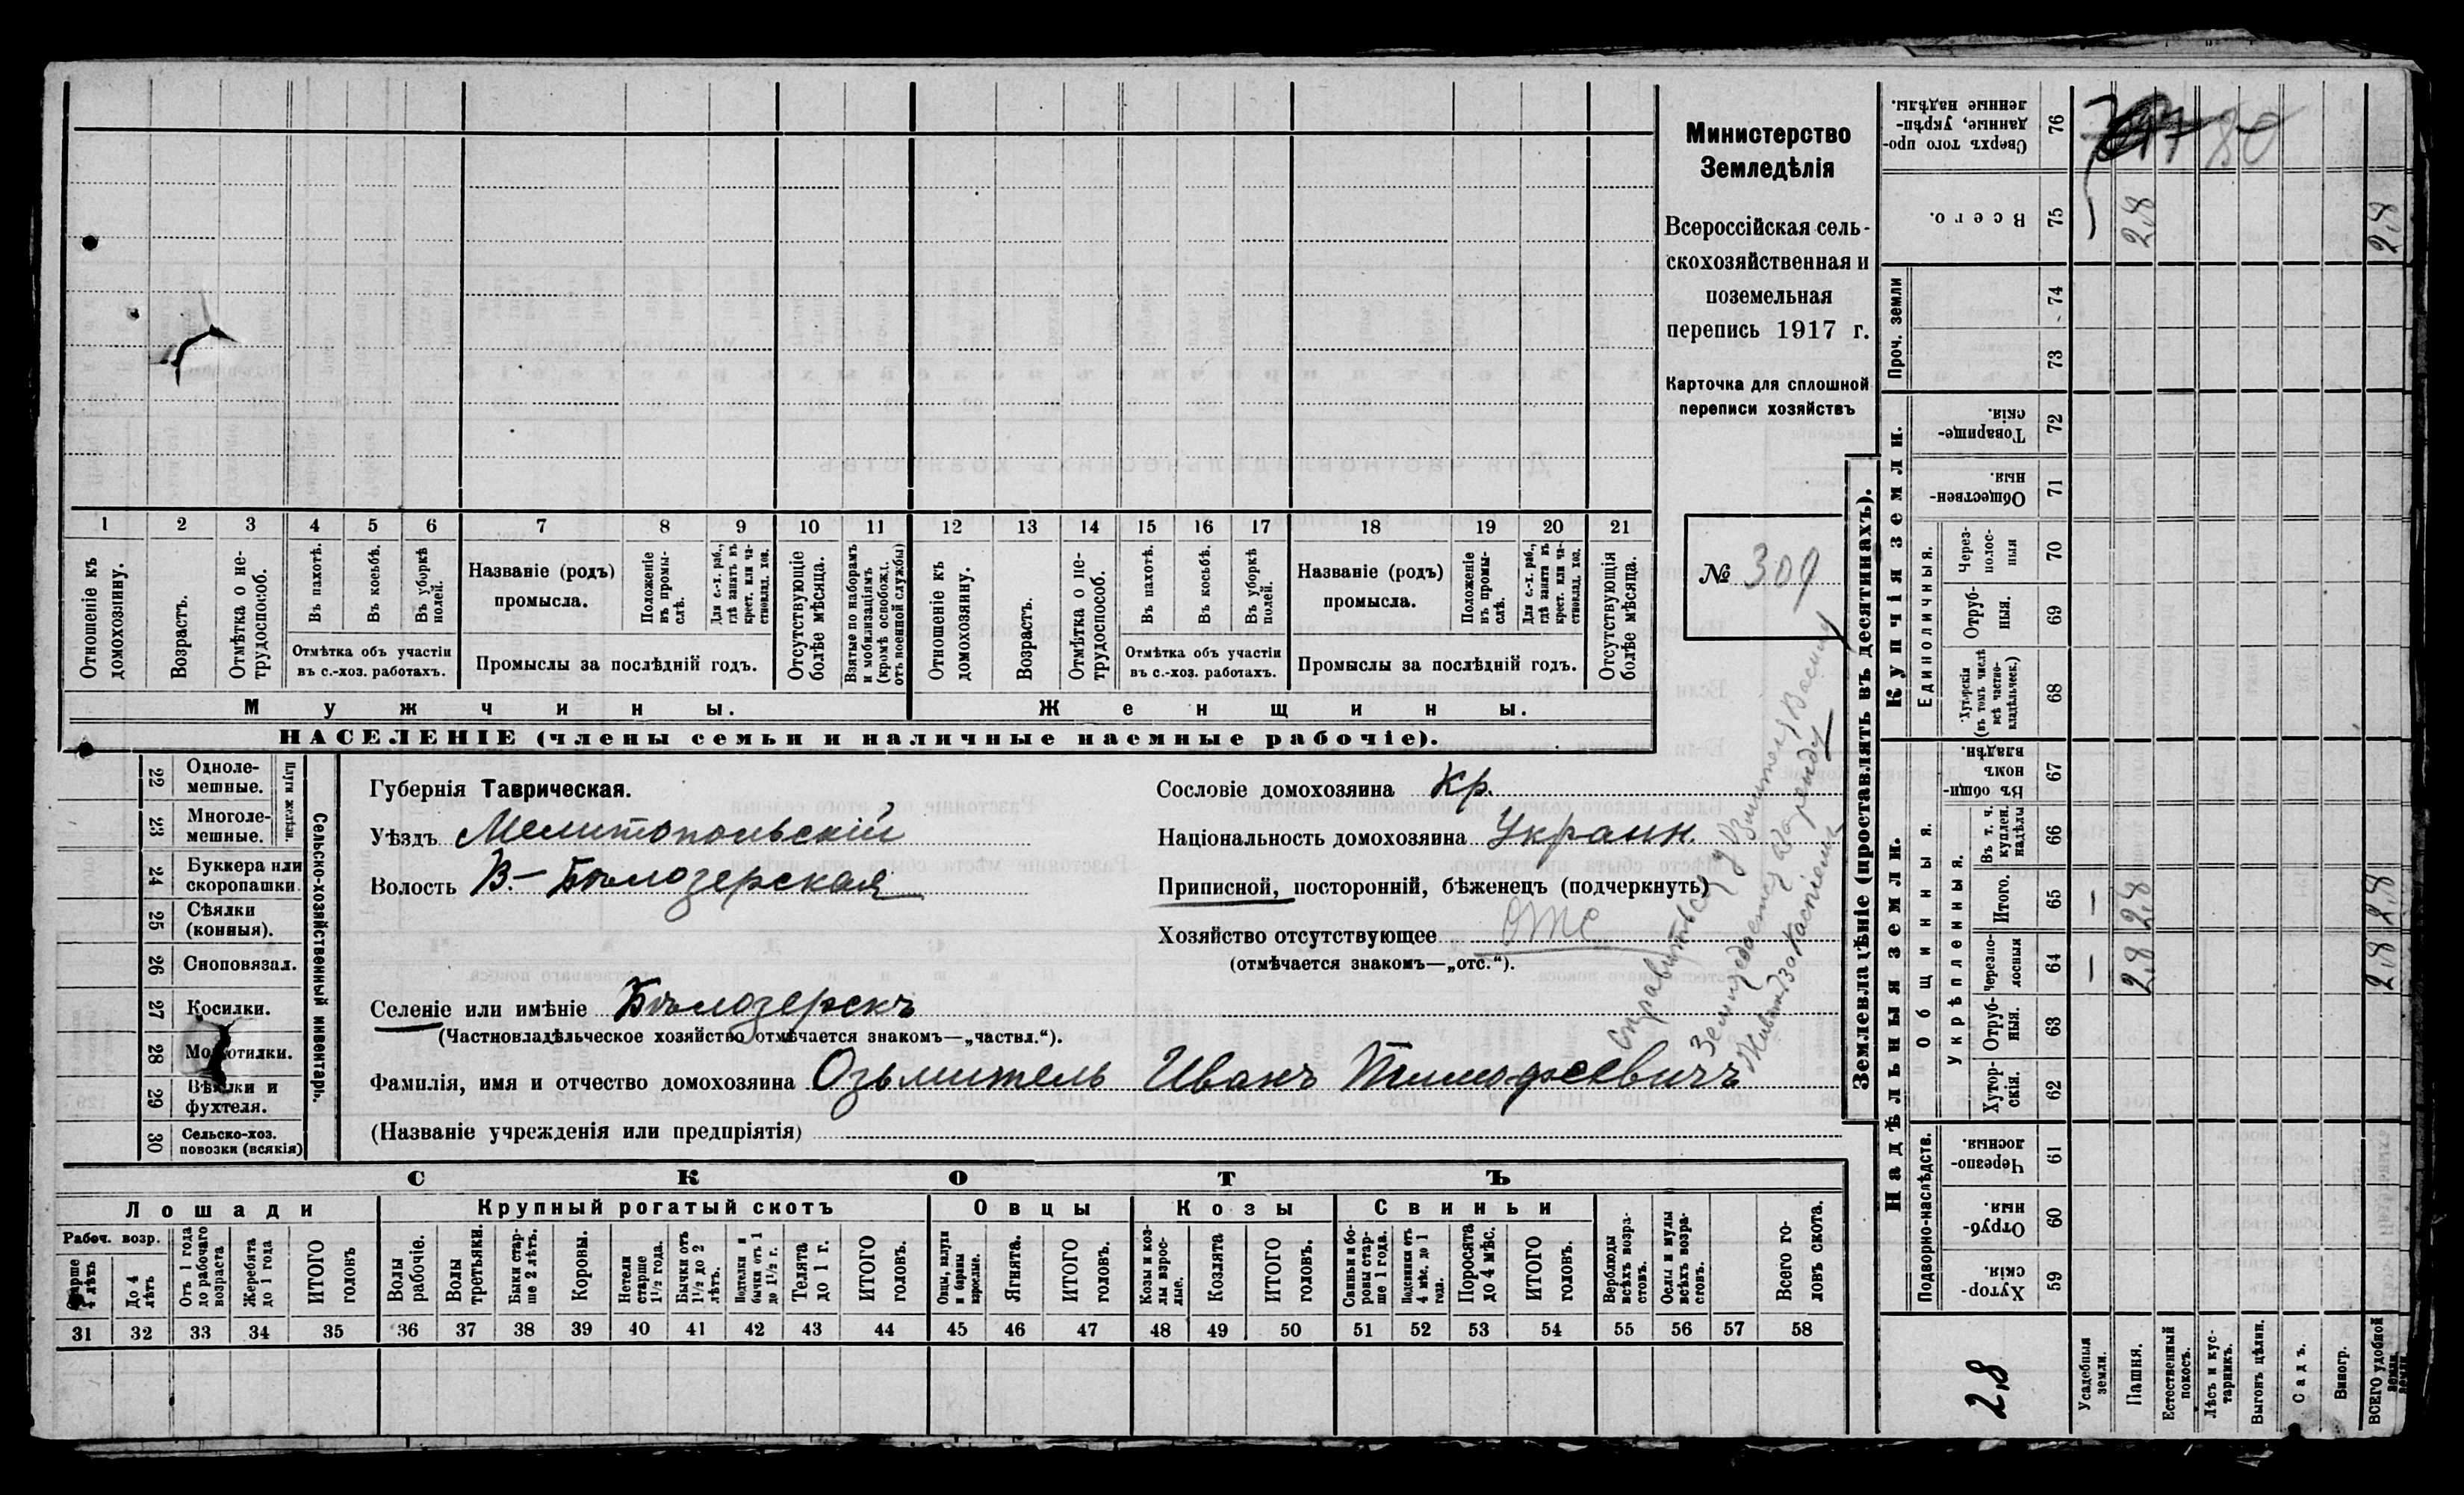 Министерство
Земледѣлія
Всероссійская сель-
скохозяйственная и
поземельная
перепись 1917 г.
Карточка для сплошной
переписи хозяйствъ
№ 309
1 2 3 4 5 6 7 8 9 10 11 12 13 14 15 16 17 18 19 20 21
Отношеніе къ домохозяину.
Возрастъ.
Отмѣтка о не-трудоспособ.
Въ пахотѣ.
Въ косьбѣ.
Въ уборкѣ полей.
Отмѣтка объ участіи
въ с.-хоз. работахъ.
Названіе (родъ)
промысла.
Положеніе въ промы-слѣ.
Для с.-х. раб., гдѣ занятъ въ крест. или ча-стновлад. хоз.
Промыслы за послѣдній годъ.
Отсутствующіе болѣе мѣсяца.
Взятые по наборамъ и мобилизаціямъ (кромѣ освобожд. отъ военной службы)
Отношеніе къ домохозяину.
Возрастъ.
Отмѣтка о не-трудоспособ.
Въ пахотѣ.
Въ косьбѣ.
Въ уборкѣ полей.
Отмѣтка объ участіи
въ с.-хоз. работахъ.
Названіе (родъ)
промысла.
Положеніе въ промы-слѣ.
Для с.-х. раб., гдѣ занята въ крест. или ча-стновлад. хоз.
Промыслы за послѣдній годъ.
Отсутствующія болѣе мѣсяца.
Мужчины.
Женщины.
НАСЕЛЕНІЕ (члены семьи и наличные наемные рабочіе).
22 Одноле-мешные.
23 Многоле-мешные.
Плуги желѣзн.
24 Буккера или скоропашки.
25 Сѣялки (конныя).
26 Сноповязал.
27 Косилки.
28 Молотилки.
29 Вѣялки и фухтеля.
30 Сельско-хоз. повозки (всякія)
Сельско-хозяйственный инвентарь.
Губернія Таврическая.
Уѣздъ Мелитопольскій
Волость В.-Бѣлозерская
Сословіе домохозяина Кр.
Національность домохозяина Украин.
Приписной, посторонній, бѣженецъ (подчеркнуть)
Хозяйство отсутствующее отс
(отмѣчается знакомъ—„отс.“).
Селеніе или имѣніе Бѣлозерскъ
(Частновладѣльческое хозяйство отмѣчается знакомъ—„частвл.“).
Фамилія, имя и отчество домохозяина Озьмитель Иванъ Тимофеевичъ
(Названіе учрежденія или предпріятія)
СКОТЪ
Лошади
Крупный рогатый скотъ
Овцы
Козы
Свиньи
Рабоч. возр.
Старше 4 лѣтъ
До 4 лѣтъ
Отъ 1 года до рабочаго возраста
Жеребята до 1 года
ИТОГО головъ
Волы рабочіе.
Волы третьяки.
Быки стар-ше 2 лѣтъ.
Коровы.
Нетели старше 1½ года.
Бычки отъ 1½ до 2 лѣтъ.
Подтелки и бычки отъ 1 до 1½ г.
Телята до 1 г.
ИТОГО головъ.
Овцы, валухи и бараны взрослые.
Ягнята.
ИТОГО головъ.
Козы и коз-лы взрос-лые.
Козлята
ИТОГО головъ.
Свиньи и бо-ровы стар-ше 1 года.
Подсвинки отъ 4 мѣс. до 1 года.
Поросята до 4 мѣс.
ИТОГО головъ.
Верблюды всѣхъ возра-стовъ.
Ослы и мулы всѣхъ возра-стовъ.
Всего го-ловъ скота.
31 32 33 34 35 36 37 38 39 40 41 42 43 44 45 46 47 48 49 50 51 52 53 54 55 56 57 58
Землевладѣніе (проставлять въ десятинахъ).
Надѣльныя земли.
Купчія земли.
Проч. земли
Подворно-наслѣдств.
Общинныя.
Укрѣпленныя.
Единоличныя.
Хутор-скія. 59
Отруб-ныя. 60
Черезпо-лосныя. 61
Хутор-скія. 62
Отруб-ныя. 63
Черезпо-лосныя 64
Итого. 65
Въ т. ч. куплен. надѣлы 66
Въ общи-номъ владѣн. 67
Хуторскія (въ томъ числѣ всѣ частно-владѣльческ.) 68
Отруб-ныя. 69
Через-полос-ныя 70
Обществен-ныя. 71
Товарище-скія. 72
73
74
Всего. 75
Сверхъ того про-данные, укрѣп-ленные надѣлы. 76
Усадебныя земли. — — —
Пашня. 2,8 2,8 2,8
Естественный покосъ.
Лѣсъ и кус-тарникъ.
Выгонъ цѣлин.
Садъ.
Виногр.
ВСЕГО удобной земли. 2,8 2,8 2,8
2,8
80